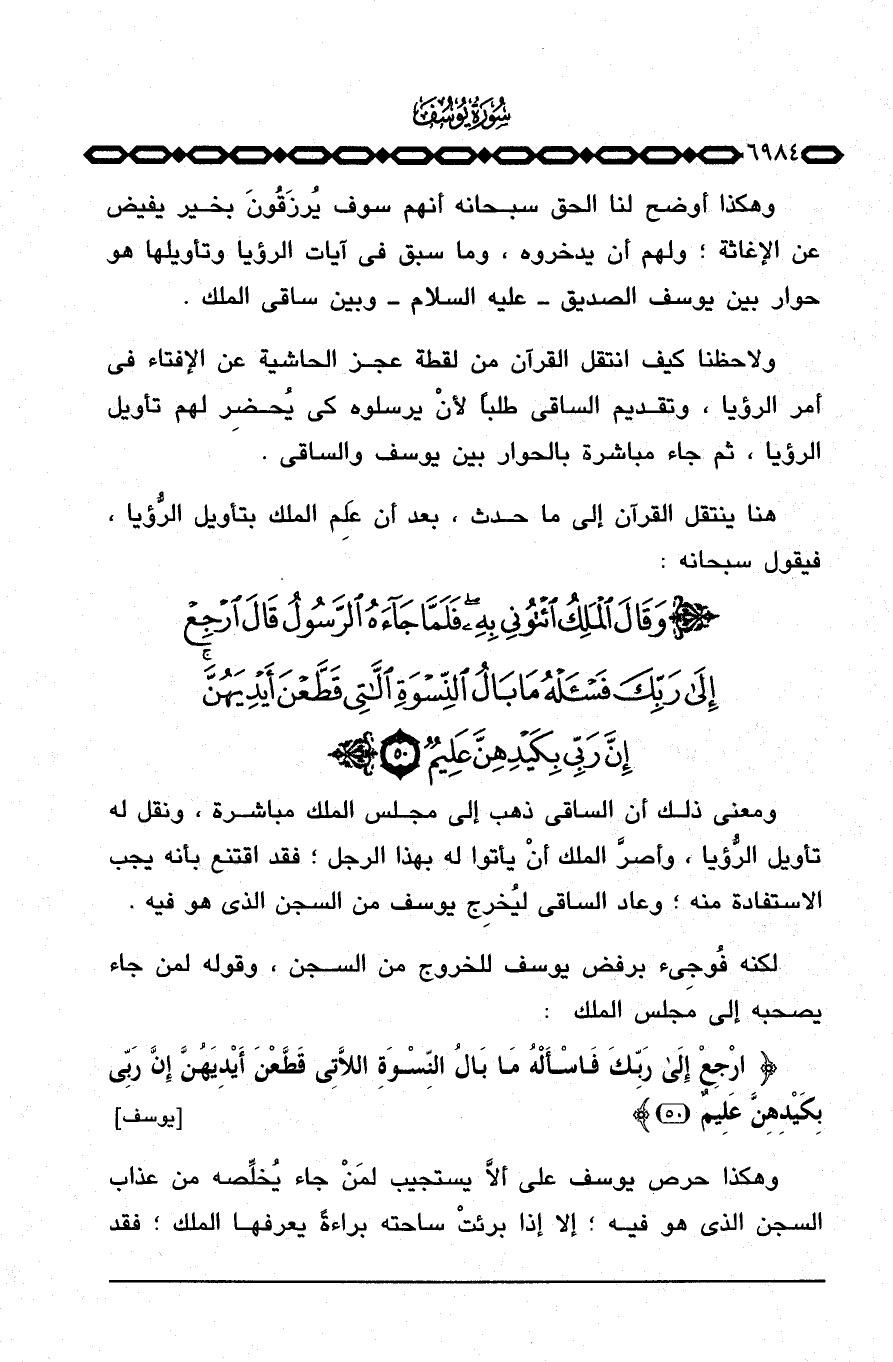 سُورَةُ يُوسُفَ
٦٩٨٤
وهكذا أوضح لنا الحق سبحانه أنهم سوف يُرزَقُونَ بخير يفيض
عن الإغاثة ؛ ولهم أن يدخروه ، وما سبق فى آيات الرؤيا وتأويلها هو
حوار بين يوسف الصديق ـ عليه السلام ـ وبين ساقى الملك .
ولاحظنا كيف انتقل القرآن من لقطة عجز الحاشية عن الإفتاء فى
أمر الرؤيا ، وتقديم الساقى طلباً لأنْ يرسلوه كى يُحضِر لهم تأويل
الرؤيا ، ثم جاء مباشرة بالحوار بين يوسف والساقى .
هنا ينتقل القرآن إلى ما حدث ، بعد أن عَلِم الملك بتأويل الرُّؤيا ،
فيقول سبحانه :
﴿ وَقَالَ ٱلْمَلِكُ ٱئْتُونِى بِهِۦۖ فَلَمَّا جَآءَهُ ٱلرَّسُولُ قَالَ ٱرْجِعْ
إِلَىٰ رَبِّكَ فَسْـَٔلْهُ مَا بَالُ ٱلنِّسْوَةِ ٱلَّـٰتِى قَطَّعْنَ أَيْدِيَهُنَّۚ
إِنَّ رَبِّى بِكَيْدِهِنَّ عَلِيمٌ ٥٠ ﴾
ومعنى ذلك أن الساقى ذهب إلى مجلس الملك مباشرة ، ونقل له
تأويل الرُّؤيا ، وأصرَّ الملك أنْ يأتوا له بهذا الرجل ؛ فقد اقتنع بأنه يجب
الاستفادة منه ؛ وعاد الساقى ليُخرِج يوسف من السجن الذى هو فيه .
لكنه فُوجِىء برفض يوسف للخروج من السجن ، وقوله لمن جاء
يصحبه إلى مجلس الملك :
﴿ ارْجِعْ إِلَىٰ رَبِّكَ فَاسْأَلْهُ مَا بَالُ النِّسْوَةِ اللاَّتِى قَطَّعْنَ أَيْدِيَهُنَّ إِنَّ رَبِّى
بِكَيْدِهِنَّ عَلِيمٌ (٥٠) ﴾ [يوسف]
وهكذا حرص يوسف على ألاَّ يستجيب لمَنْ جاء يُخلِّصه من عذاب
السجن الذى هو فيه ؛ إلا إذا برئتْ ساحته براءةً يعرفها الملك ؛ فقد